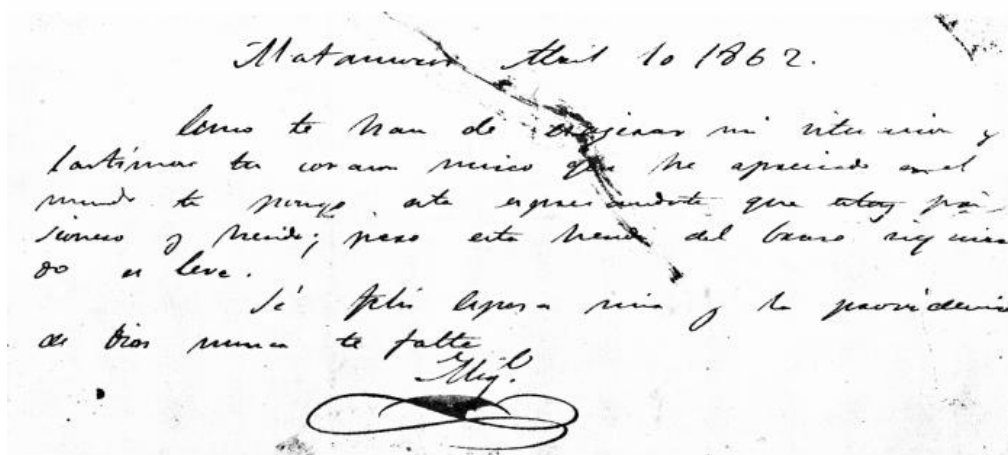 Matamoros Abril 10 1862.
Como te han de exagerar mi situacion y
lastimar tu corazon unico que he apreciado en el
mundo te pongo esta expresandote que estoy pri-
sionero y herido; pero esta herida del brazo izquier
do es leve.
Sé feliz esposa mia y la providencia
de Dios nunca te falte
Mig.l